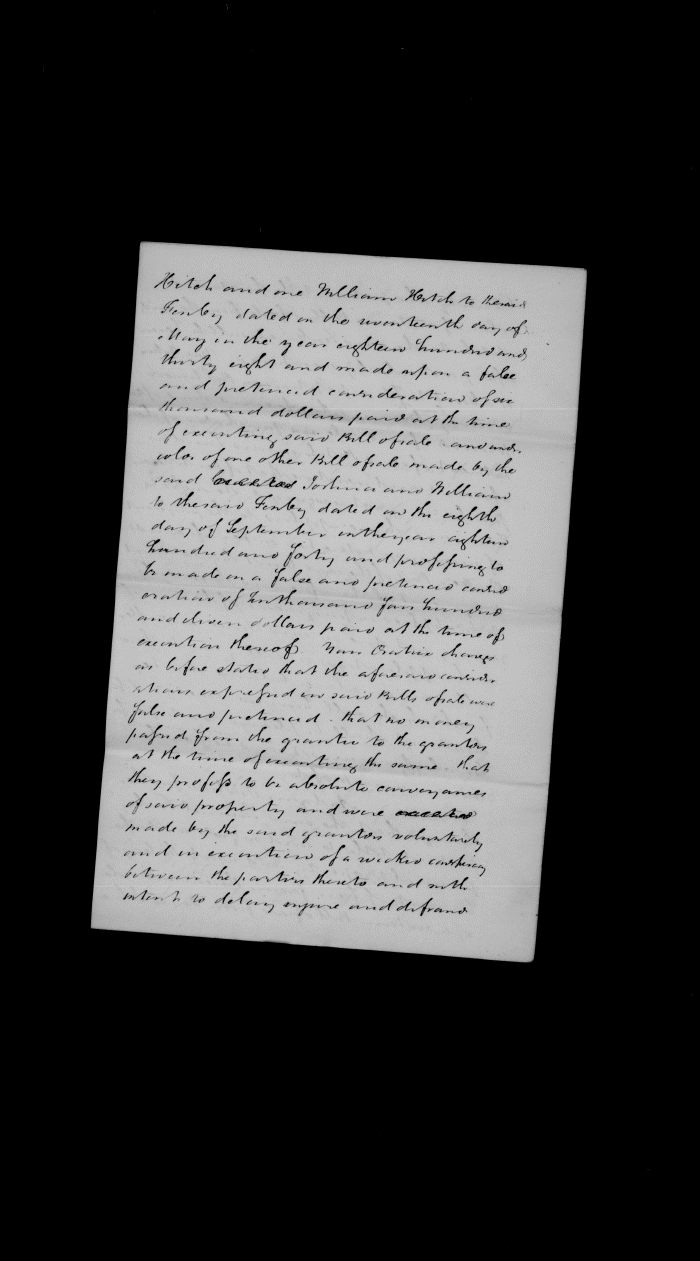 Hitch and one William Hitch to the said
Fenby dated on the seventeenth day of
May in the year eighteen hundred and
thirty eight and made upon a false
and pretenced consideration of six
thousand dollars paid at the time
of executing said Bill of sale and under
color of one other Bill of sale made by the
said Joshua and William
to the said Fenby dated on the eighth
day of September in the year eighteen
hundred and forty and professing to
be made on a false and pretenced consid
eration of Ten thousand four hundred
and eleven dollars paid at the time of
execution thereof Your Oratrix charges
as before stated that the aforesaid consider
ations expressed in said Bills of sale were
false and pretenced. that no money
passed from the grantee to the grantors
at the time of executing the same. that
they profess to be absolute conveyances
of said property and were
made by the said grantors voluntarily
and in execution of a wicked conspiracy
between the parties thereto and with
intent to delay injure and defraud